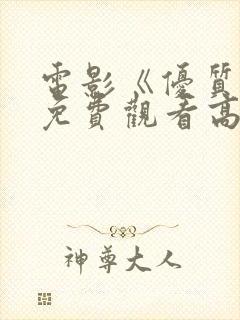 電影《優質
免費觀看高
神尊大人